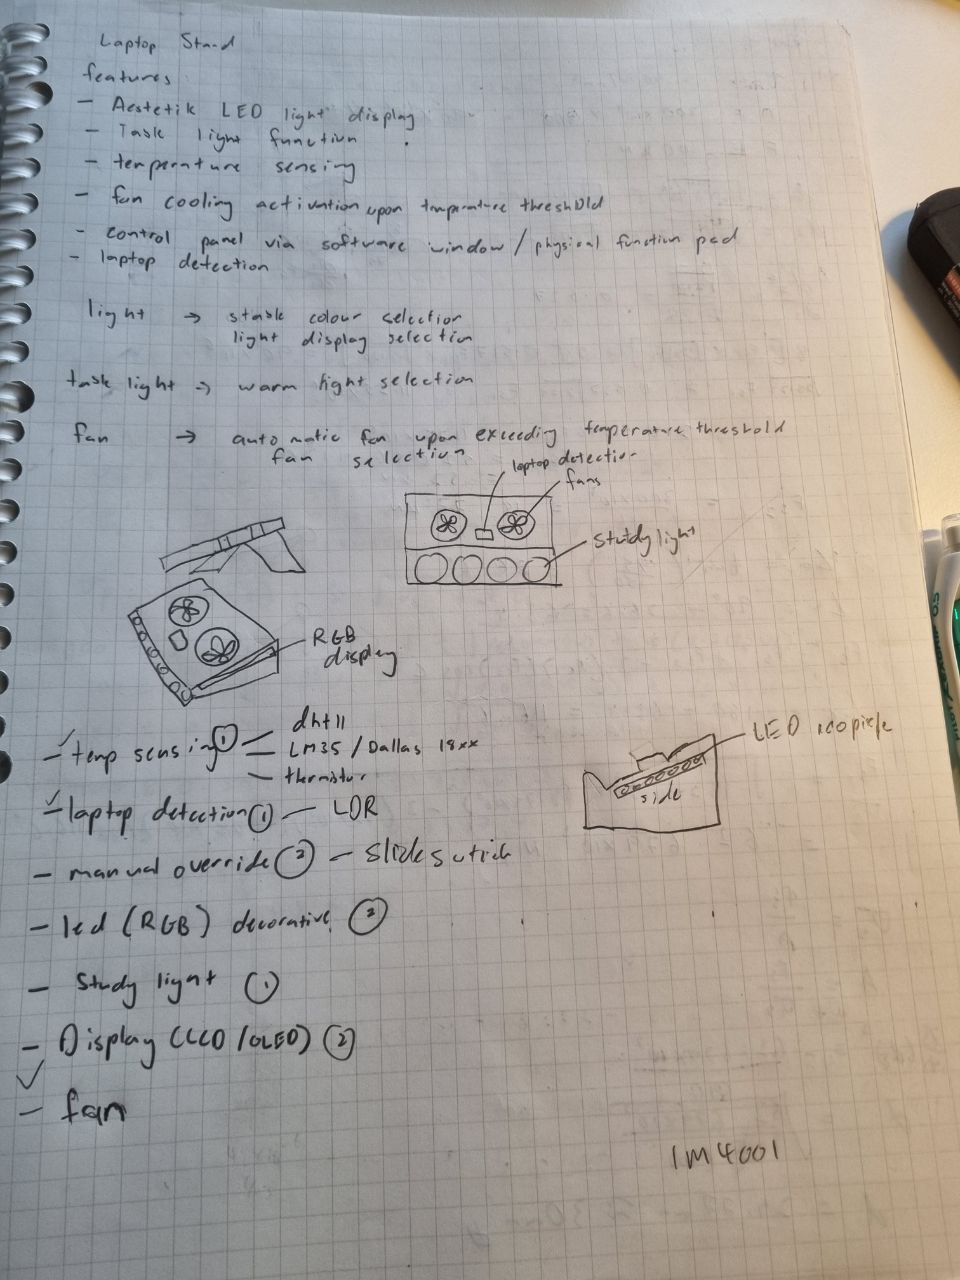 Laptop Stand
features
- Aestetik LED light display
- Task light function
- temperature sensing
- fan cooling activation upon temperature threshold
- control panel via software window / physical function pad
- laptop detection
light → colour selection
light display selection
task light → warm light selection
fan → automatic fan upon exceeding temperature threshold
fan selection
laptop detection
fans
light
RGB
display
- temp sensing 1
dht11
LM35 / Dallas 18xx
thermistor
- laptop detection 1 - LDR
- manual override 2 - slide switch
- led (RGB) decorative 2
- Study light 1
- Display (LCD / OLED) 2
- fan
LED
side
1M4001